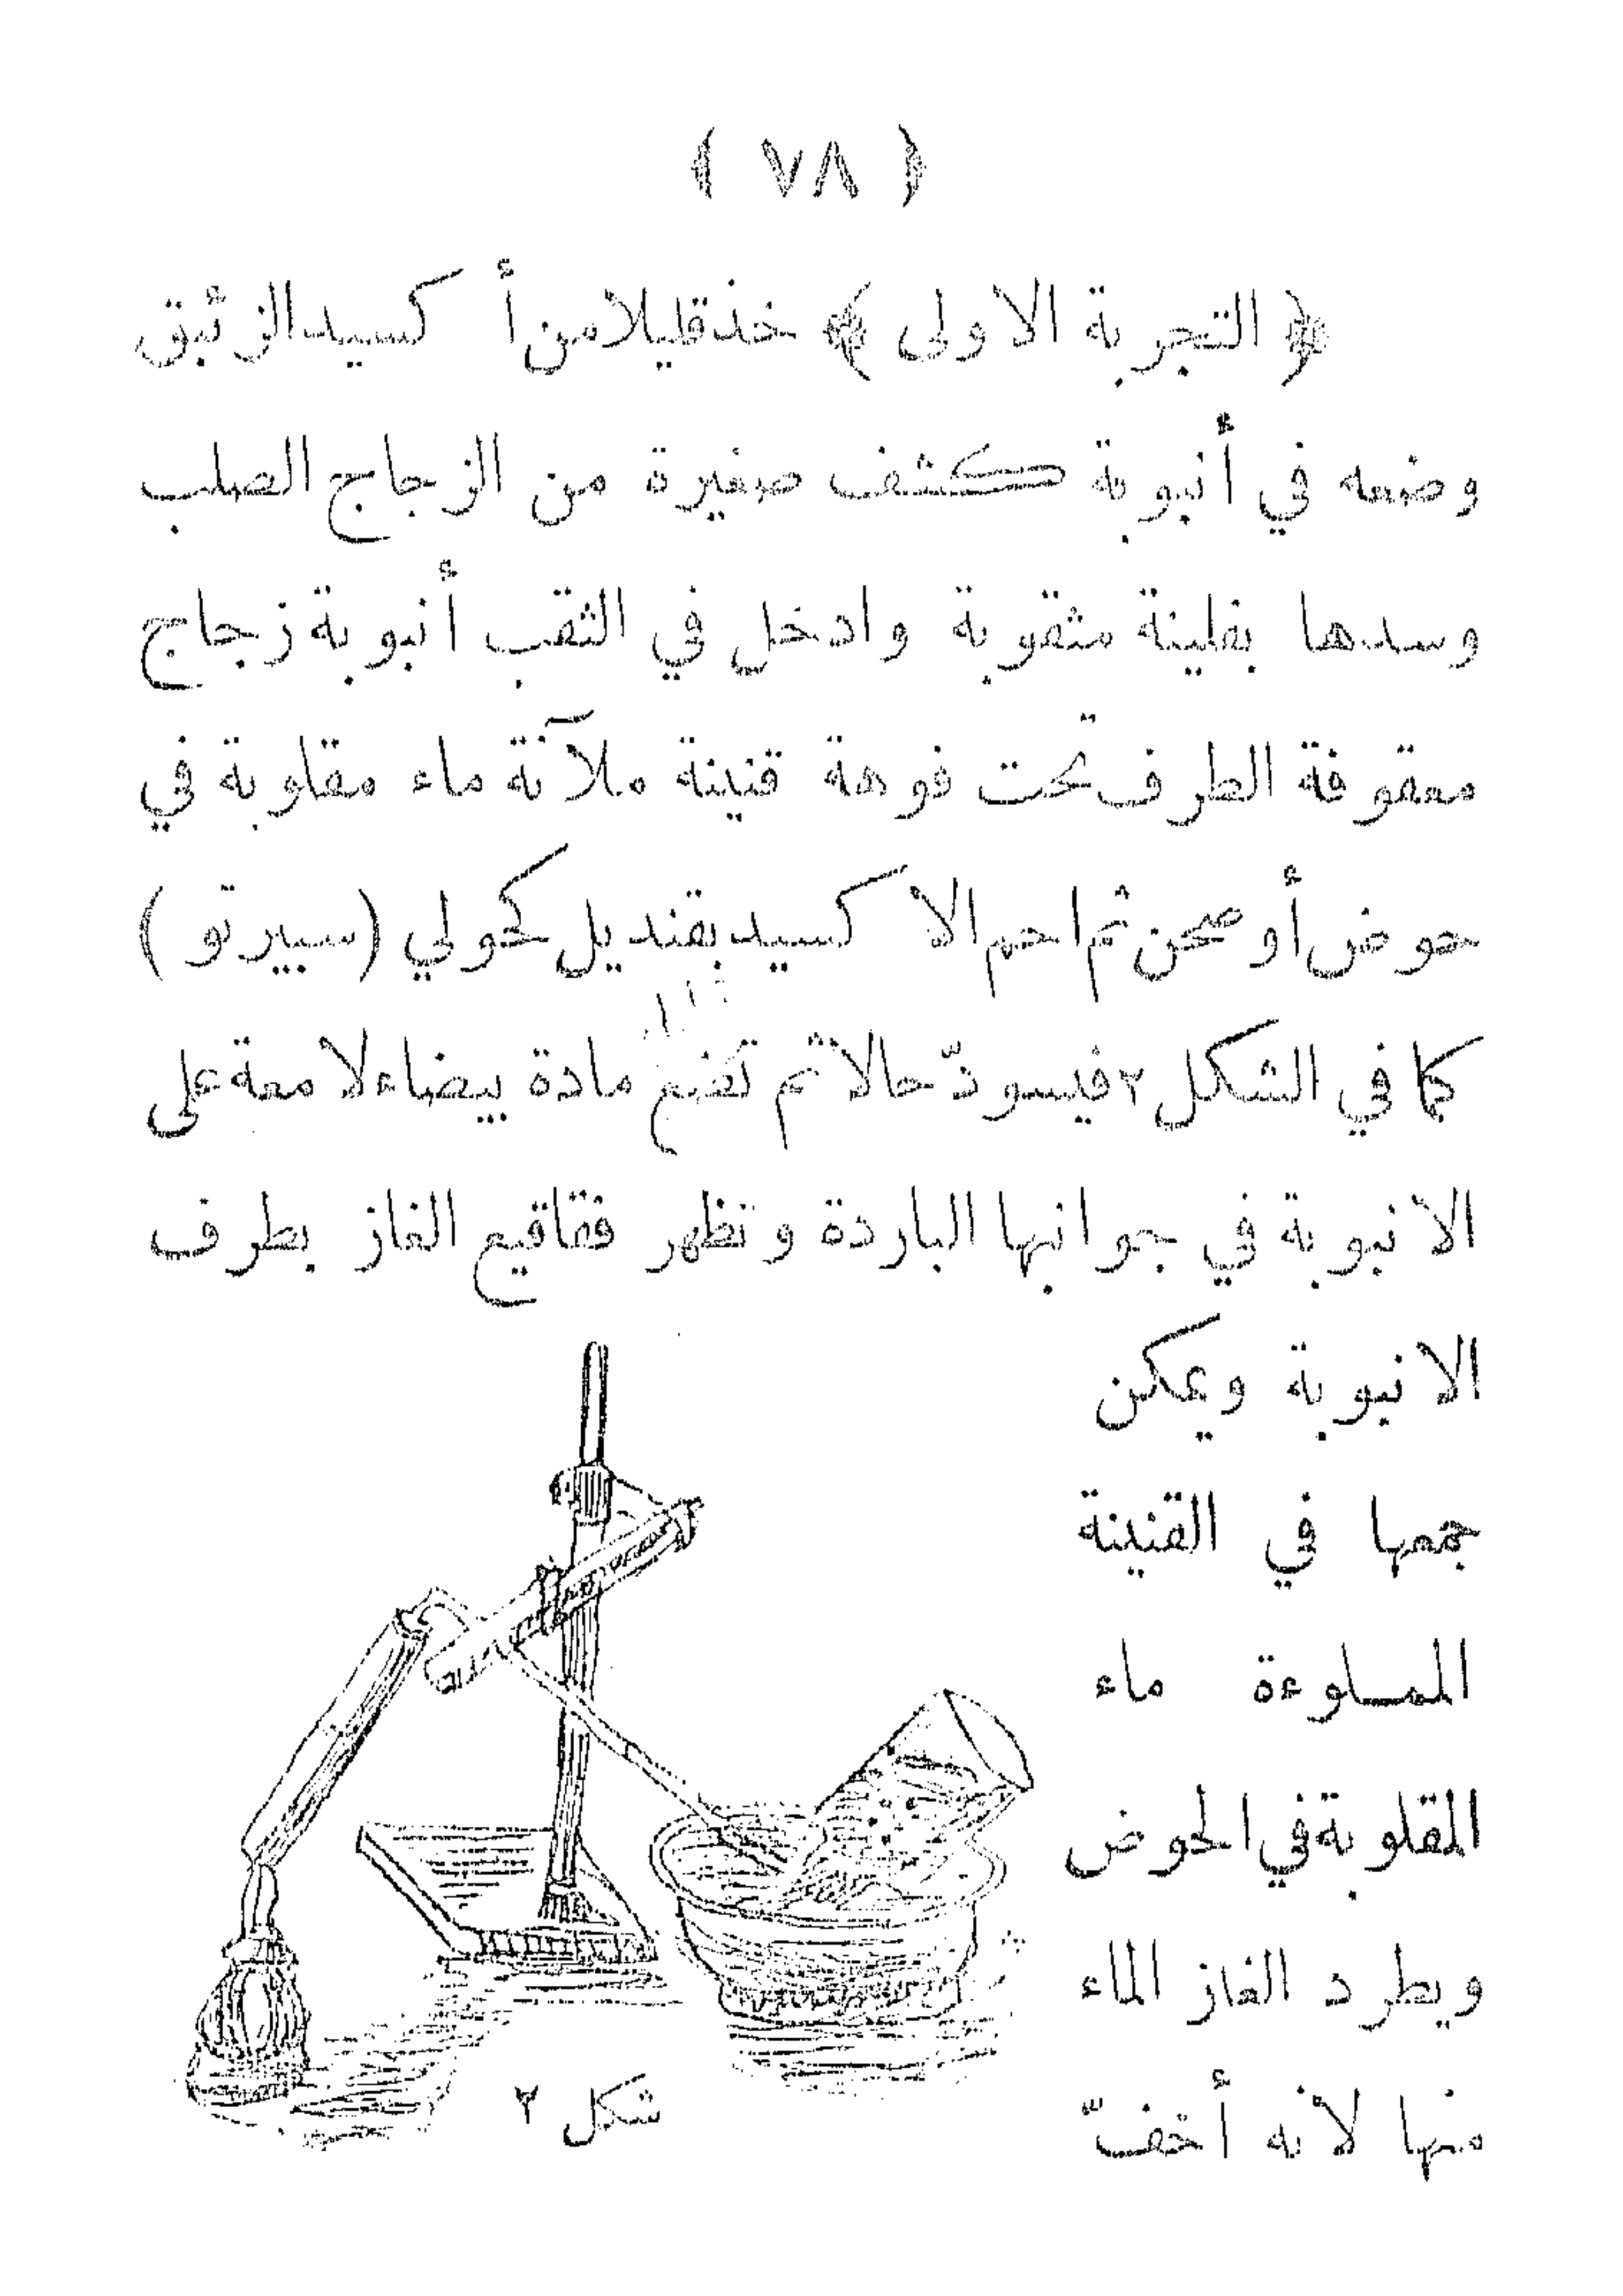 ﴿ ٧٨ ﴾
﴿ التجربة الاولى ﴾ خذ قليلا من أكسيد الزئبق
وضعه في أنبوبة كشف صغيرة من الزجاج الصلب
وسدها بفلينة مثقوبة وادخل في الثقب أنبوبة زجاج
معقوفة الطرف تحت فوهة قنينة ملآنة ماء مقلوبة في
حوض أو صحن ثم احم الاكسيد بقنديل كحولي (سبيرتو)
كما في الشكل ٢ فيسودّ حالا ثم مادة بيضاء لامعة على
الانبوبة في جوانبها الباردة وتظهر فقاقيع الغاز بطرف
الانبوبة ويمكن
جمعها في القنينة
المملوءة ماء
المقلوبة في الحوض
ويطرد الغاز الماء
منها لأنه أخفّ
شكل ٢